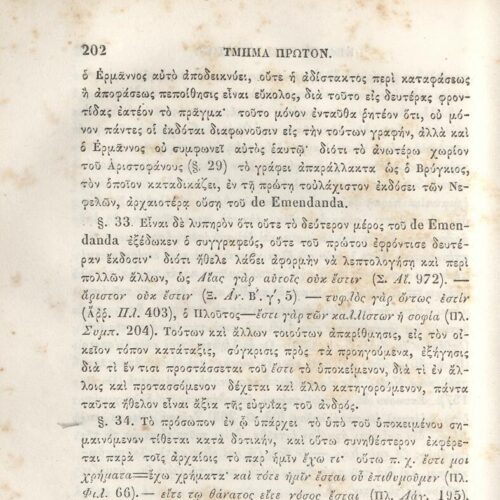 202 ΤΜΗΜΑ ΠΡΩΤΟΝ.
ὁ Ἑρμάννος αὐτὸ ἀποδεικνύει, οὔτε ἡ ἀδίστακτος περὶ καταφάσεως
ἢ ἀποφάσεως πεποίθησις εἶναι εὔκολος, διὰ τοῦτο εἰς δευτέρας φρον-
τίδας ἐατέον τὸ πρᾶγμα· τοῦτο μόνον ἐνταῦθα ῥητέον ὅτι, οὐ μό-
νον πάντες οἱ ἐκδόται διαφωνοῦσιν εἰς τὴν τούτων γραφὴν, ἀλλὰ καὶ
ὁ Ἑρμᾶννος οὐ συμφωνεῖ αὐτὸς ἑαυτῷ· διότι τὸ ἀνωτέρω χωρίον
τοῦ Ἀριστοφάνους (§. 29) τὸ γράφει ἀπαράλλακτα ὡς ὁ Βρύγκιος,
τὸν ὁποῖον καταδικάζει, ἐν τῇ πρώτῃ τοὐλάχιστον ἐκδόσει τῶν Νε-
φελῶν, ἀρχαιοτέρᾳ οὔσῃ τοῦ de Emendanda.
§. 33. Εἶναι δὲ λυπηρὸν ὅτι οὔτε τὸ δεύτερον μέρος τοῦ de Emen-
danda ἐξέδωκεν ὁ συγγραφεὺς, οὔτε τοῦ πρώτου ἐφρόντισε δευτέ-
ραν ἔκδοσιν· διότι ἤθελε λάβει ἀφορμὴν νὰ λεπτολογήσῃ καὶ περὶ
πολλῶν ἄλλων, ὡς Αἴας γὰρ αὐτοῖς οὐκ ἔστιν (Σ. Αἴ. 972). —
ἄριστον οὐκ ἔστιν (Ξ. Ἀν. Β΄. γ΄, 5) — τυφλὸς γὰρ ὄντως ἐστὶν
(Ἀρρ. Πλ. 403), ὁ Πλοῦτος — ἔστι γὰρ τῶν καλλίστων ἡ σοφία (Πλ.
Συμπ. 204). Τούτων καὶ ἄλλων τοιούτων ἀπαρίθμησις, εἰς τὸν οἰ-
κεῖον τόπον κατάταξις, σύγκρισις πρὸς τὰ προηγούμενα, ἐξήγησις
διὰ τί ἔν τισι προστάσσεται τοῦ ἔστι τὸ ὑποκείμενον, διὰ τί ἐν ἄλ-
λοις καὶ προτασσόμενον δέχεται καὶ ἄλλο κατηγορούμενον, πάντα
ταῦτα ἤθελον εἶναι ἄξια τῆς εὐφυΐας τοῦ ἀνδρός.
§. 34. Τὸ πρόσωπον ἐν ᾧ ὑπάρχει τὸ ὑπὸ τοῦ ὑποκειμένου ση-
μαινόμενον τίθεται κατὰ δοτικὴν, καὶ οὕτω συνηθέστερον ἐκφέρε-
ται παρὰ τοῖς ἀρχαίοις τὸ παρ' ἡμῖν ἔχω τι· οὕτω π. χ. ἔστι μοι
χρήματα=ἔχω χρήματα· καὶ τότε ἡμῖν ἔσται οὗ ἐπιθυμοῦμεν (Πλ.
Φιλ. 66). — εἴτε τῳ θάνατος εἴτε νόσος ἔσται (Πλ. Λάχ. 195).